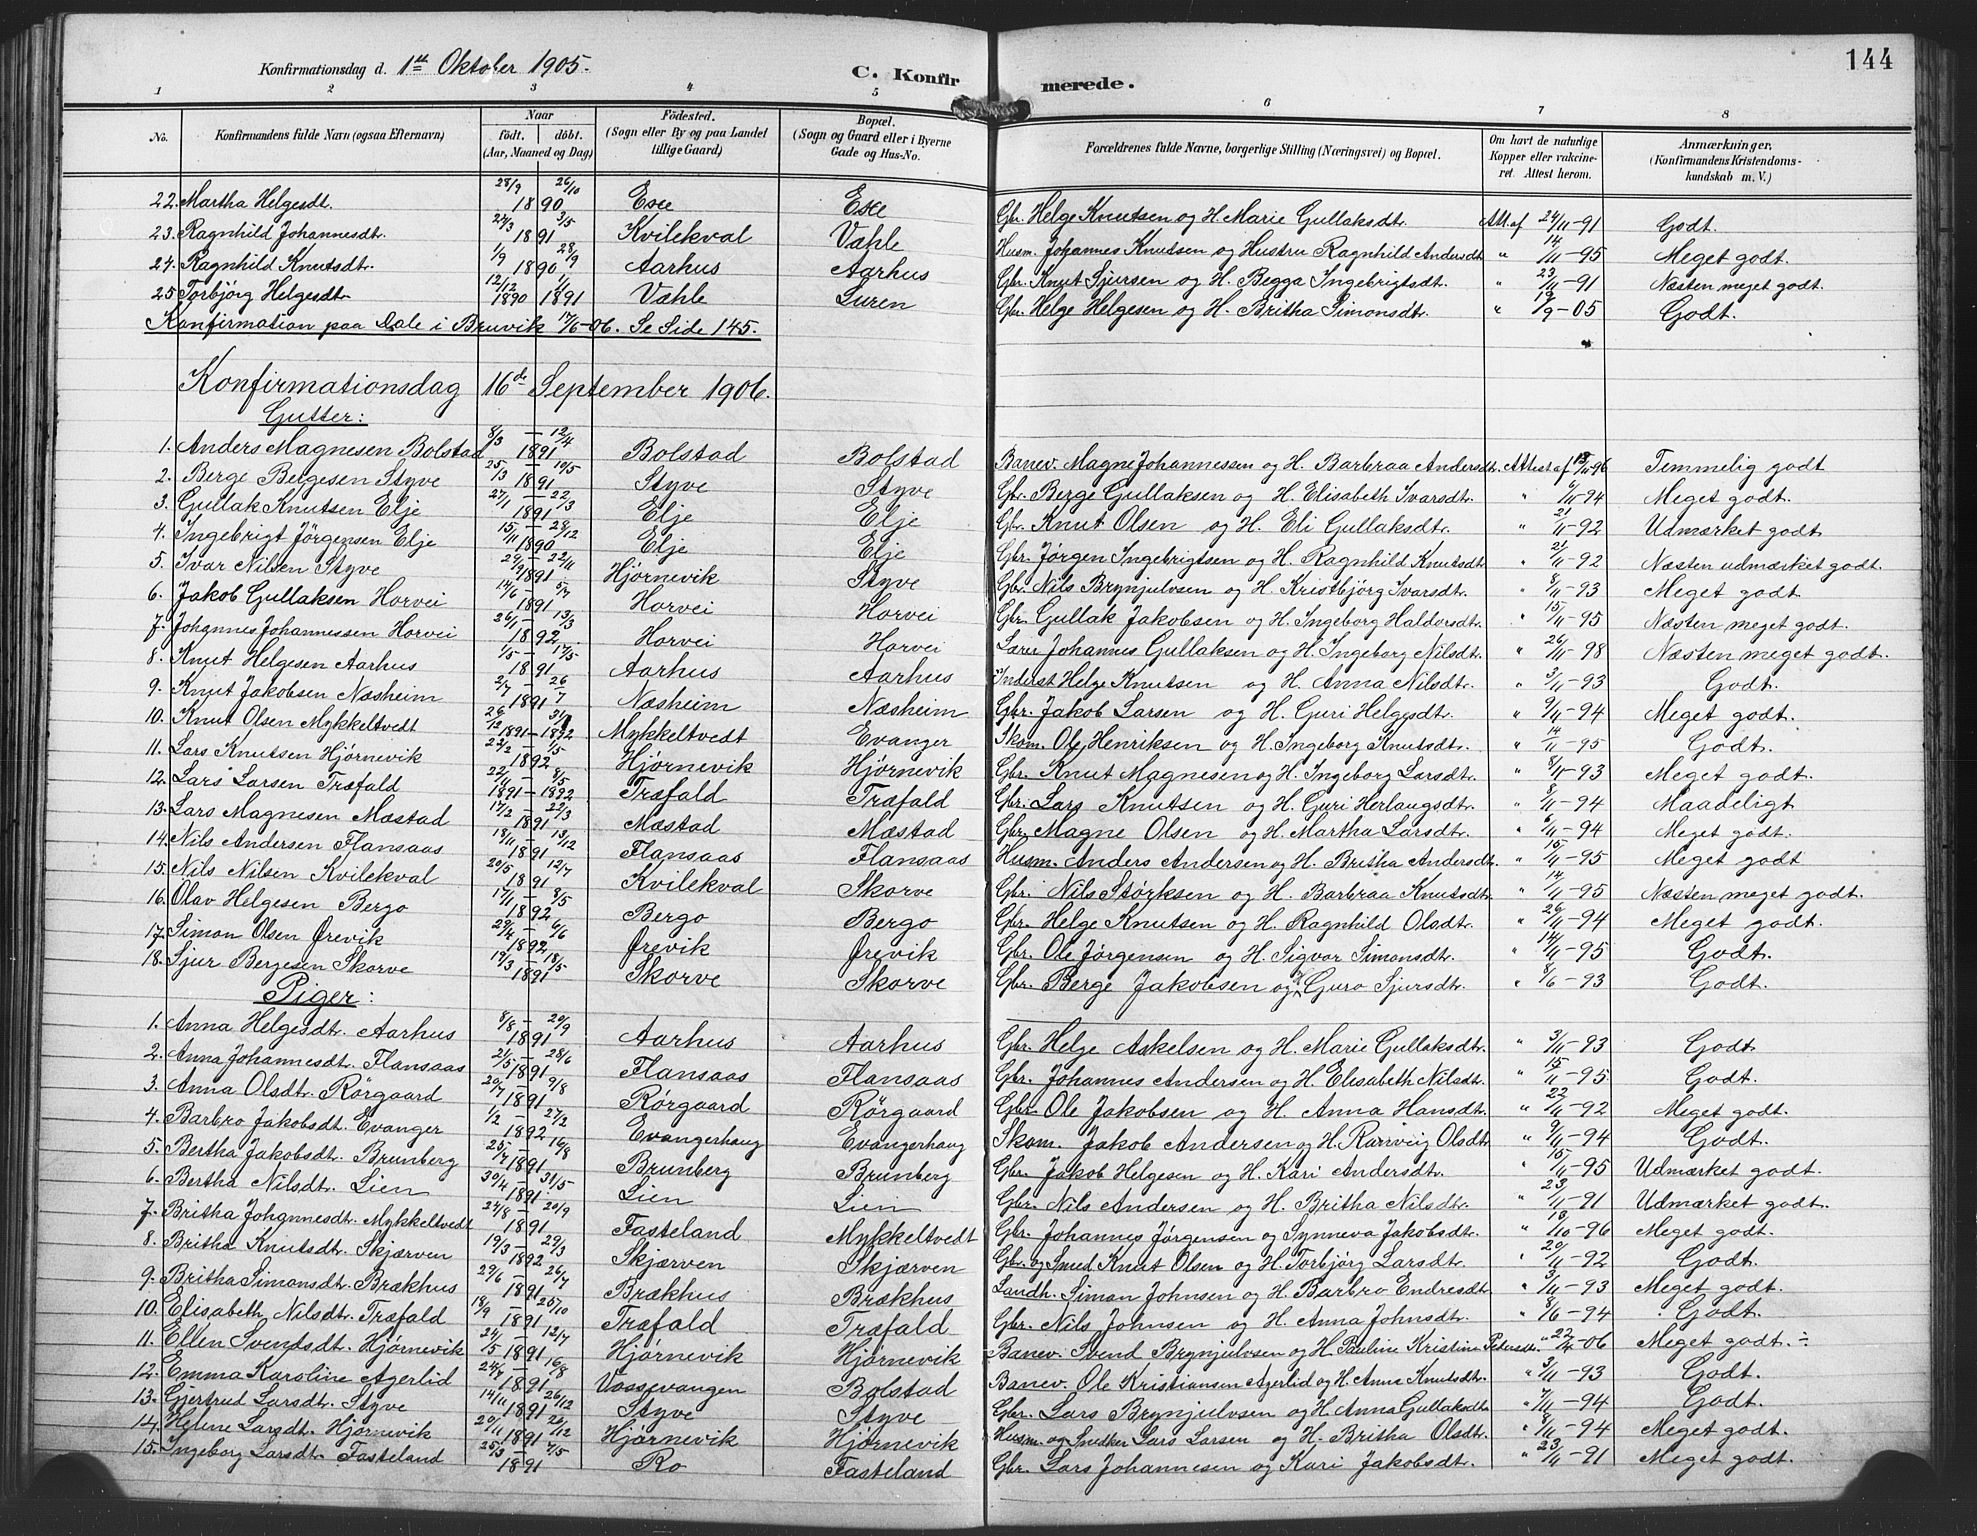 144
Konfirmationsdag d. 1ste Oktober 1905.
C. Konfirmerede.
1 2 3 4 5 6 7 8
No. | Konfirmandens fulde Navn (ogsaa Efternavn) | Naar födt. döbt. (Aar, Maaned og Dag) | Födested. (Sogn eller By og paa Landet tillige Gaard) | Bopæl. (Sogn og Gaard eller i Byerne Gade og Hus-No. | Forældrenes fulde Navne, borgerlige Stilling (Næringsvei) og Bopæl. | Om havt de naturlige Kopper eller vakcineret. Attest herom. | Anmærkninger. (Konfirmandens Kristendomskundskab m. V.)
22. Martha Helgesdt. 28/9 26/10 1890 Exe Exe Gbr. Helge Knutsen og H. Marie Gullaksdt. Att. af 24/11-91 Godt.
23. Ragnhild Johannesdt. 27/3 3/5 1891 Kvilekval Væhle Husm. Johannes Knutsen og Hustru Ragnhild Andersdt. " 14/11-95 Meget godt.
24. Ragnhild Knutsdt. 1/9 28/9 1890 Aarhus Aarhus Gbr. Knut Sjursen og H. Begga Ingebrigtsdt. " 23/11-91 Næsten meget godt.
25. Torbjörg Helgesdt. 12/12 1890 1/1 1891 Væhle Luren Gbr. Helge Helgesen og H. Britha Simonsdt. " 19/9-05 Godt.
Konfirmation paa Dale i Bruvik 17/6-06. Se Side 145.
Konfirmationsdag 16de September 1906.
Gutter:
1. Anders Magnesen Bolstad 8/3 - 12/4 1891 Bolstad Bolstad Banev. Magne Johannessen og H. Barbraa Andersdt. Attest af 13/11-96 Temmelig godt
2. Berge Bergesen Styve 25/3 - 10/5 1891 Styve Styve Gbr. Berge Gullaksen og H. Elisabeth Ivarsdt. " 6/11-94 Meget godt.
3. Gullak Knutsen Elje 27/1 - 22/3 1891 Elje Elje Gbr. Knut Olsen og H. Eli Gullaksdt. " 21/11-92 Udmærket godt.
4. Ingebrigt Jörgensen Elje 15/11 - 28/12 1890 Elje Elje Gbr. Jörgen Ingebrigtsen og H. Ragnhild Knutsdt. " 21/11-92 Næsten udmærket godt.
5. Ivar Nilsen Styve 29/9 - 22/11 1891 Hjørnevik Styve Gbr. Nils Brynjulvsen og H. Kristbjörg Ivarsdt. " 8/11-93 Meget godt.
6. Jakob Gullaksen Horvei 14/6 - 5/7 1891 Horvei Horvei Gbr. Gullak Jakobsen og H. Ingeborg Haldorsdt. " 15/11-95 Næsten meget godt.
7. Johannes Johannessen Horvei 26/1 - 13/3 1892 Horvei Horvei Lærer Johannes Gullaksen og H. Ingeborg Nilsdt. " 26/11-98 Næsten meget godt.
8. Knut Helgesen Aarhus 1/5 - 17/5 1891 Aarhus Aarhus Inderst Helge Knutsen og H. Anna Nilsdt. " 3/11-93 Godt.
9. Knut Jakobsen Næsheim 2/7 - 26/7 1891 Næsheim Næsheim Gbr. Jakob Larsen og H. Guri Helgesdt. " 9/11-94 Meget godt.
10. Knut Olsen Mykkeltvedt 26/12 1891 - 31/1 1892 Mykkeltvedt Evanger Skom. Ole Henriksen og H. Ingeborg Knutsdt. " 14/11-95 Godt.
11. Lars Knutsen Hjørnevik 23/2 - 1/5 1892 Hjørnevik Hjørnevik Gbr. Knut Magnesen og H. Ingeborg Larsdt. " 8/11-93 Meget godt.
12. Lars Larsen Træfald 22/11 1891 - 8/5 1892 Træfald Træfald Gbr. Lars Knutsen og H. Guri Herlaugsdt. " 8/11-94 Maadeligt
13. Lars Magnesen Mæstad 17/2 - 22/3 1891 Mæstad Mæstad Gbr. Magne Olsen og H. Martha Larsdt. " 6/11-94 Meget godt.
14. Nils Andersen Flansaas 18/11 - 13/12 1891 Flansaas Flansaas Husm. Anders Andersen og H. Britha Andersdt. " 15/11-95 Meget godt
15. Nils Nilsen Kvilekval 20/5 - 12/7 1891 Kvilekval Skorve Gbr. Nils Størksen og H. Barbraa Knutsdt. " 14/11-95 Næsten meget godt.
16. Olav Helgesen Bergo 17/1 - 8/5 1892 Bergo Bergo Gbr. Helge Knutsen og H. Ragnhild Olsdt. " 26/11-94 Meget godt.
17. Simon Olsen Ørevik 29/4 - 6/6 1892 Ørevik Ørevik Gbr. Ole Jørgensen og H. Sigvor Simonsdt. " 14/11-95 Godt.
18. Sjur Bergesen Skorve 19/3 - 18/5 1891 Skorve Skorve Gbr. Berge Jakobsen og H. Guro Sjursdt. " 8/6-93 Godt.
Piger:
1. Anna Helgesdt. Aarhus 8/8 - 20/9 1891 Aarhus Aarhus Gbr. Helge Askelsen og H. Marie Gullaksdt. " 3/11-93 Godt
2. Anna Johannesdt. Flansaas 21/5 - 28/6 1891 Flansaas Flansaas Gbr. Johannes Andersen og H. Elisabeth Nilsdt. " 15/11-95 Godt.
3. Anna Olsdt. Rörgaard 20/7 - 9/8 1891 Rörgaard Rörgaard Gbr. Ole Jakobsen og H. Anna Hansdt. " 22/11-92 Meget godt.
4. Barbro Jakobsdt. Evanger 1/2 - 27/2 1892 Evangerhaug Evangerhaug Skom. Jakob Andersen og H. Rannveig Olsdt. " 9/11-94 Godt.
5. Bertha Jakobsdt. Brunberg 25/7 - 16/8 1891 Brunberg Brunberg Gbr. Jakob Helgesen og H. Kari Andersdt. " 15/11-95 Udmærket godt.
6. Bertha Nilsdt. Lien 30/4 - 31/5 1891 Lien Lien Gbr. Nils Andersen og H. Britha Nilsdt. " 23/11-91 Udmærket godt.
7. Britha Johannesdt. Mykkeltvedt 24/8 - 20/9 1891 Fasteland Mykkeltvedt Gbr. Johannes Jørgensen og Synneva Jakobsdt. " 18/10-96 Meget godt.
8. Britha Knutsdt. Skjærven 19/3 - 29/3 1892 Skjærven Skjærven Gbr. og Smed Knut Olsen og H. Torbjörg Larsdt. " 20/11-92 Godt.
9. Britha Simonsdt. Brækhus 29/6 - 26/7 1891 Brækhus Brækhus Landh. Simon Johnsen og H. Barbro Endresdt. " 3/11-93 Meget godt.
10. Elisabeth Nilsdt. Træfald 19/9 - 25/10 1891 Træfald Træfald Gbr. Nils Johnsen og H. Anna Johnsdt. " 8/6-94 Godt.
11. Ellen Svendsdt. Hjørnevik 24/5 - 12/7 1891 Hjørnevik Hjørnevik Banev. Svend Brynjulvsen og H. Pauline Kristine Pedersdt. " 22/4-06 Meget godt.÷
12. Emma Karoline Agerlid 24/7 - 16/8 1891 Vossevangen Bolstad Banev. Ole Kristiansen Agerlid og H. Anna Knutsdt. " 3/11-93 Godt.
13. Gjertrud Larsdt. Styve 14/11 - 26/12 1891 Styve Styve Gbr. Lars Brynjulvsen og H. Anna Gullaksdt. " 7/11-94 Godt.
14. Helene Larsdt. Hjørnevik 20/11 - 26/12 1891 Hjørnevik Hjørnevik Husm. og Snedker Lars Larsen og H. Britha Olsdt. " 8/11-94 Meget godt.
15. Ingeborg Larsdt. Fasteland 25/3 - 7/5 1891 Ro Fasteland Gbr. Lars Johannesen og Kari Jakobsdt. " 23/11-91 Meget godt.